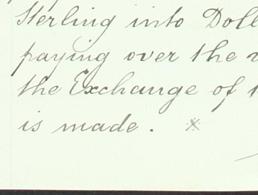 Sterling into Doll
paying over the
the Exchange of
is made. x